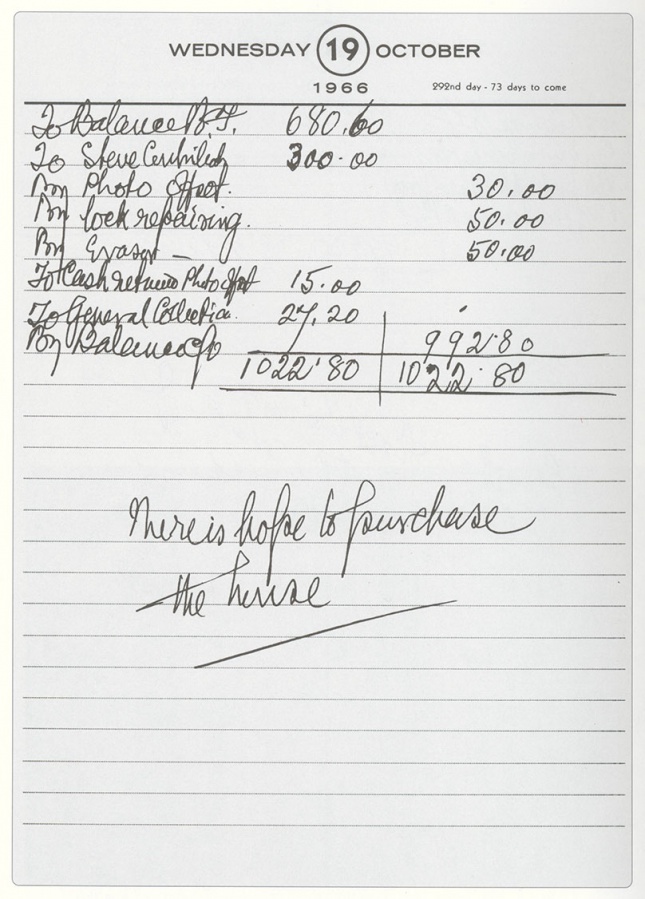 WEDNESDAY 19 OCTOBER
1966 292nd day - 73 days to come
To Balance B.F. 680.60
To Steve 300.00
By Photo offset. 30.00
By lock repairing. 50.00
By Eraser — 50.00
To Cash Photo offset 15.00
To General Collection. 27.20
By Balance c/o 992.80
1022.80 1022.80
There is hope to purchase
the house